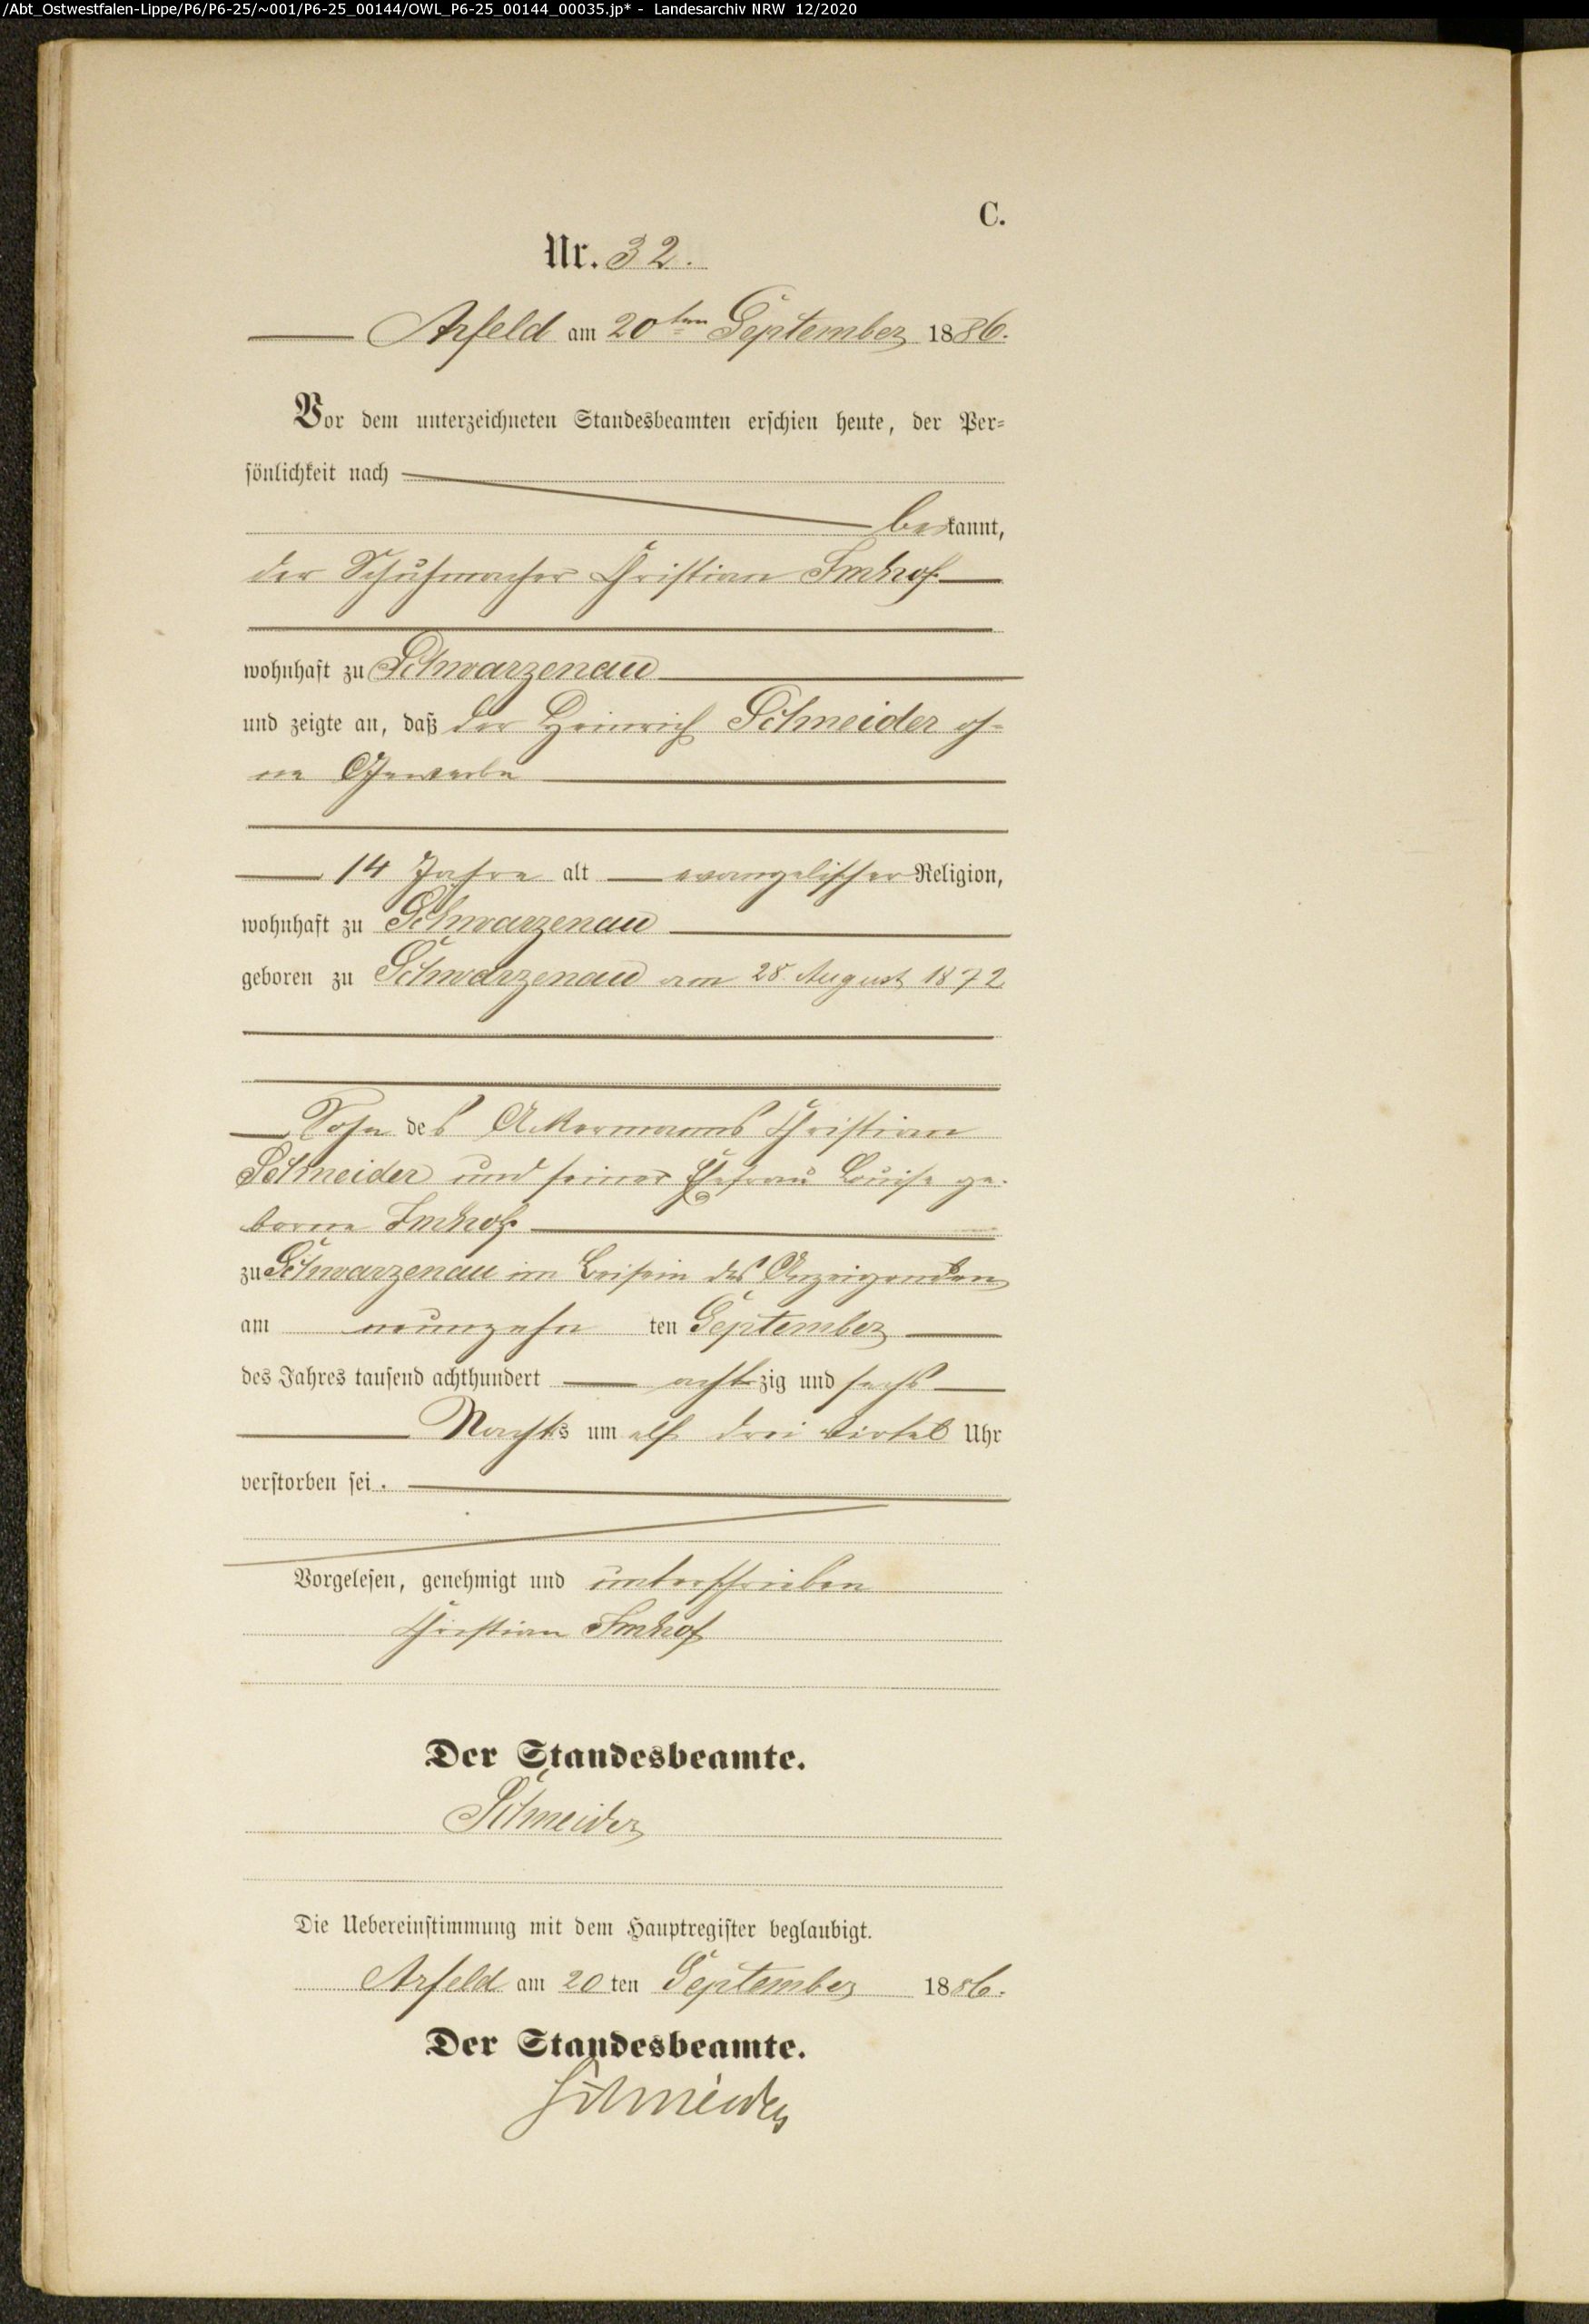 /Abt_Ostwestfalen-Lippe/P6/P6-25/~001/P6-25_00144/OWL_P6-25_00144_00035.jp* - Landesarchiv NRW 12/2020
C.
Nr. 32.
Arfeld am 20ten September 1886.
Vor dem unterzeichneten Standesbeamten erschien heute, der Per-
sönlichkeit nach
bekannt,
der Schuhmacher Christian Imhof
wohnhaft zu Schwarzenau
und zeigte an, daß der Heinrich Schneider oh-
ne Gewerbe
14 Jahre alt evangelischer Religion,
wohnhaft zu Schwarzenau
geboren zu Schwarzenau am 28. August 1872
Sohn des Ackermanns Christian
Schneider und seiner Ehefrau Louise ge-
borne Imhof.
zu Schwarzenau im Beisein des Anzeigenden
am neunzehn ten September
des Jahres tausend achthundert achtzig und sechs
Nachts um elf drei virtel Uhr
verstorben sei.
Vorgelesen, genehmigt und unterschrieben
Christian Imhof
Der Standesbeamte.
Schneider
Die Uebereinstimmung mit dem Hauptregister beglaubigt.
Arfeld am 20 ten September 1886.
Der Standesbeamte.
Schneider